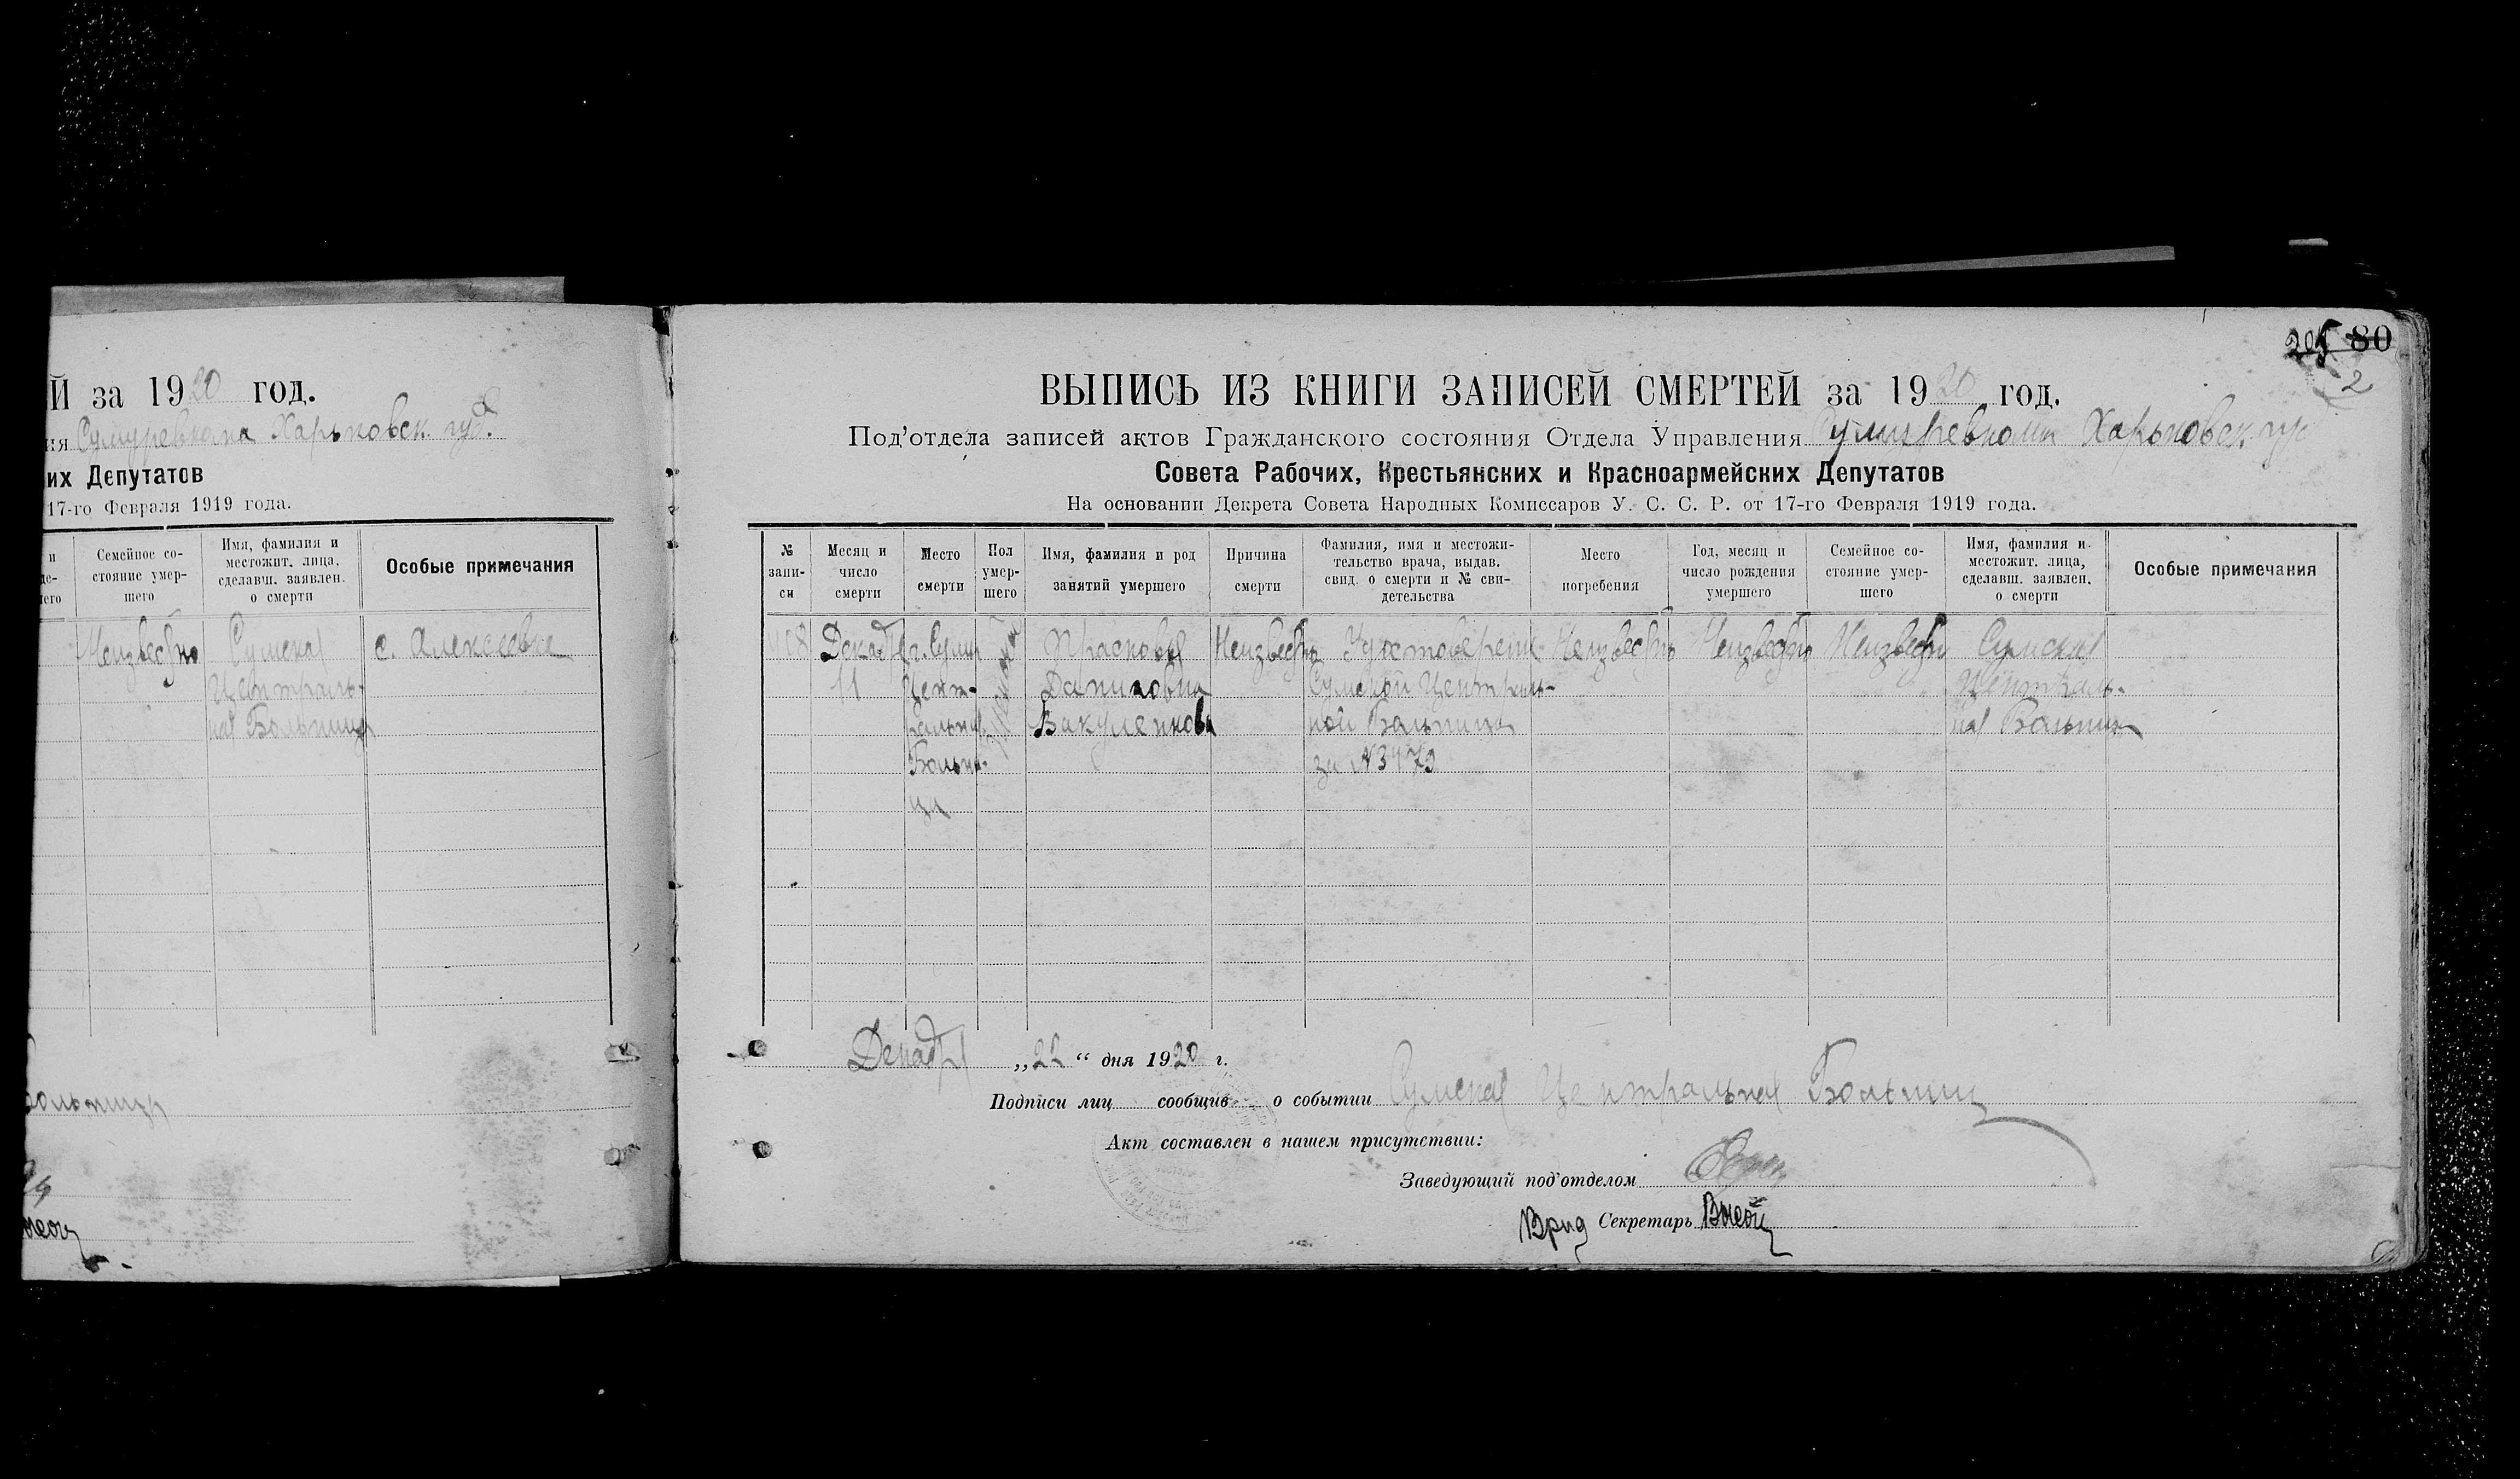 Й за 1920 год.
ня Сумуревкома Харьковск. губ.
их Депутатов
17-го Февраля 1919 года.
и
де-
его
Семейное со-
стояние умер-
шего
Имя, фамилия и
местожит. лица,
сделавш. заявлен.
о смерти
Особые примечания
Неизвестно
Сумская
Централь-
ная Больница
с. Алексеевка
Больница
205 80
2
ВЫПИСЬ ИЗ КНИГИ ЗАПИСЕЙ СМЕРТЕЙ за 1920 год.
Под'отдела записей актов Гражданского состояния Отдела Управления Сумуревкома Харьковск. гу
Совета Рабочих, Крестьянских и Красноармейских Депутатов
На основании Декрета Совета Народных Комиссаров У. С. С. Р. от 17-го Февраля 1919 года.
№
запи-
си
Месяц и
число
смерти
Место
смерти
Пол
умер-
шего
Имя, фамилия и род
занятий умершего
Причина
смерти
Фамилия, имя и местожи-
тельство врача, выдав.
свид. о смерти и № сви-
детельства
Место
погребения
Год, месяц и
число рождения
умершего
Семейное со-
стояние умер-
шего
Имя, фамилия и
местожит. лица,
сделавш. заявлен.
о смерти
Особые примечания
Декабря
11
г. Сумы
Цент-
ральная
Больни-
ца
Прасковья
Даниловна
Бакуленкова
Неизвестно
Удостоверение
Сумской Централь-
ной Больницы
за №3479
Неизвестно
Неизвестно
Неизвестно
Сумская
Централь-
ная Больница
Декабря „22“ дня 1920 г.
Подписи лиц сообщив о событии Сумская Центральная Больница
Акт составлен в нашем присутствии:
Заведующий под'отделом
Врид Секретарь